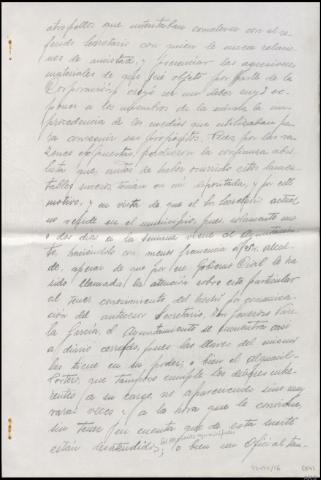 atropellos que intentaban cometerse con el re-
ferido Secretario con quien le unen relacio-
nes de amistad, y presenciar las agresiones
materiales de que fué objeto por parte de la
Corporación, creyó en un deber suyo ex-
poner a los miembros de la misma la im-
procedencia de los medios que utilizaban pa-
ra conseguir sus propósitos. Que por las ra-
zones expuestas, perdieron la confianza
que antes de haber ocurrido estos lamen-
tables sucesos tenían en mi, y por este
motivo, y en vista de que el Sr. Secretario actual
no reside en el municipio, pues solamente uno
o dos días en la semana viene al Ayuntamien-
to, haciéndolo con menos frecuencia el Sr. Alcal-
de, apesar de que por ese Gobierno Civil le ha
sido llamada la atención sobre este particular
al tener conocimiento del hecho por comunica-
ción del anterior Secretario, Don Vare-
la García, el Ayuntamiento se encuentra casi
a diario cerrado, pues las llaves del mismo
las tiene en su poder, o bien el Alguacil-
Portero, que tampoco cumple los deberes inhe-
rentes a su cargo, no apareciendo sino muy
raras veces y a la hora que le conviene,
sin tener en cuenta que de esta suerte
están desatendidos, o bien un Oficial tem-